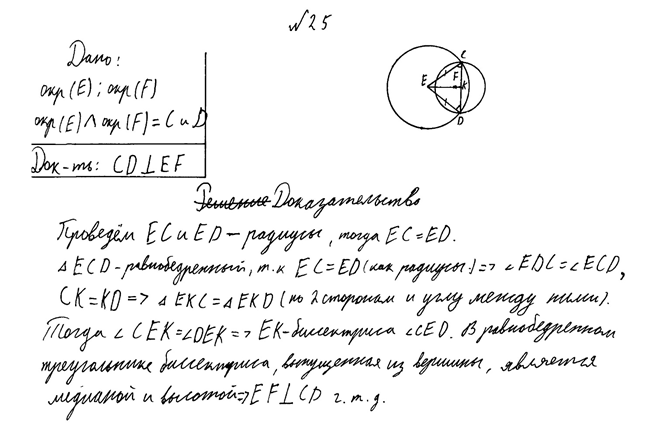 №25
Дано:
окр(E); окр(F)
окр(E)∧окр(F)=C и D
Док-ть: CD⊥EF
C
E
F
K
D
Решение Доказательство
Проведём EC и ED – радиусы, тогда EC=ED.
△ECD-равнобедренный, т.к EC=ED(как радиусы.)=>∠EDC=∠ECD,
CK=KD=>△EKC=△EKD (по 2 сторонам и углу между ними).
Тогда ∠CEK=∠DEK=>EK-биссектриса ∠CED. В равнобедренном
треугольнике биссектриса, выпущенная из вершины, является
медианой и высотой=>EF⊥CD ч.т.д.